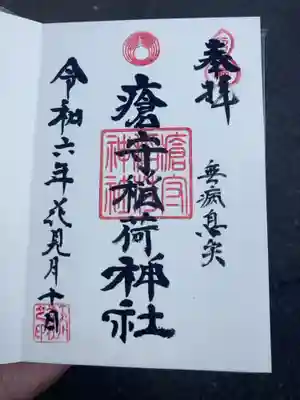 奉拝
無病息災
瘡守稲荷神社
瘡守
稲荷
神社
令和六年花見月十日